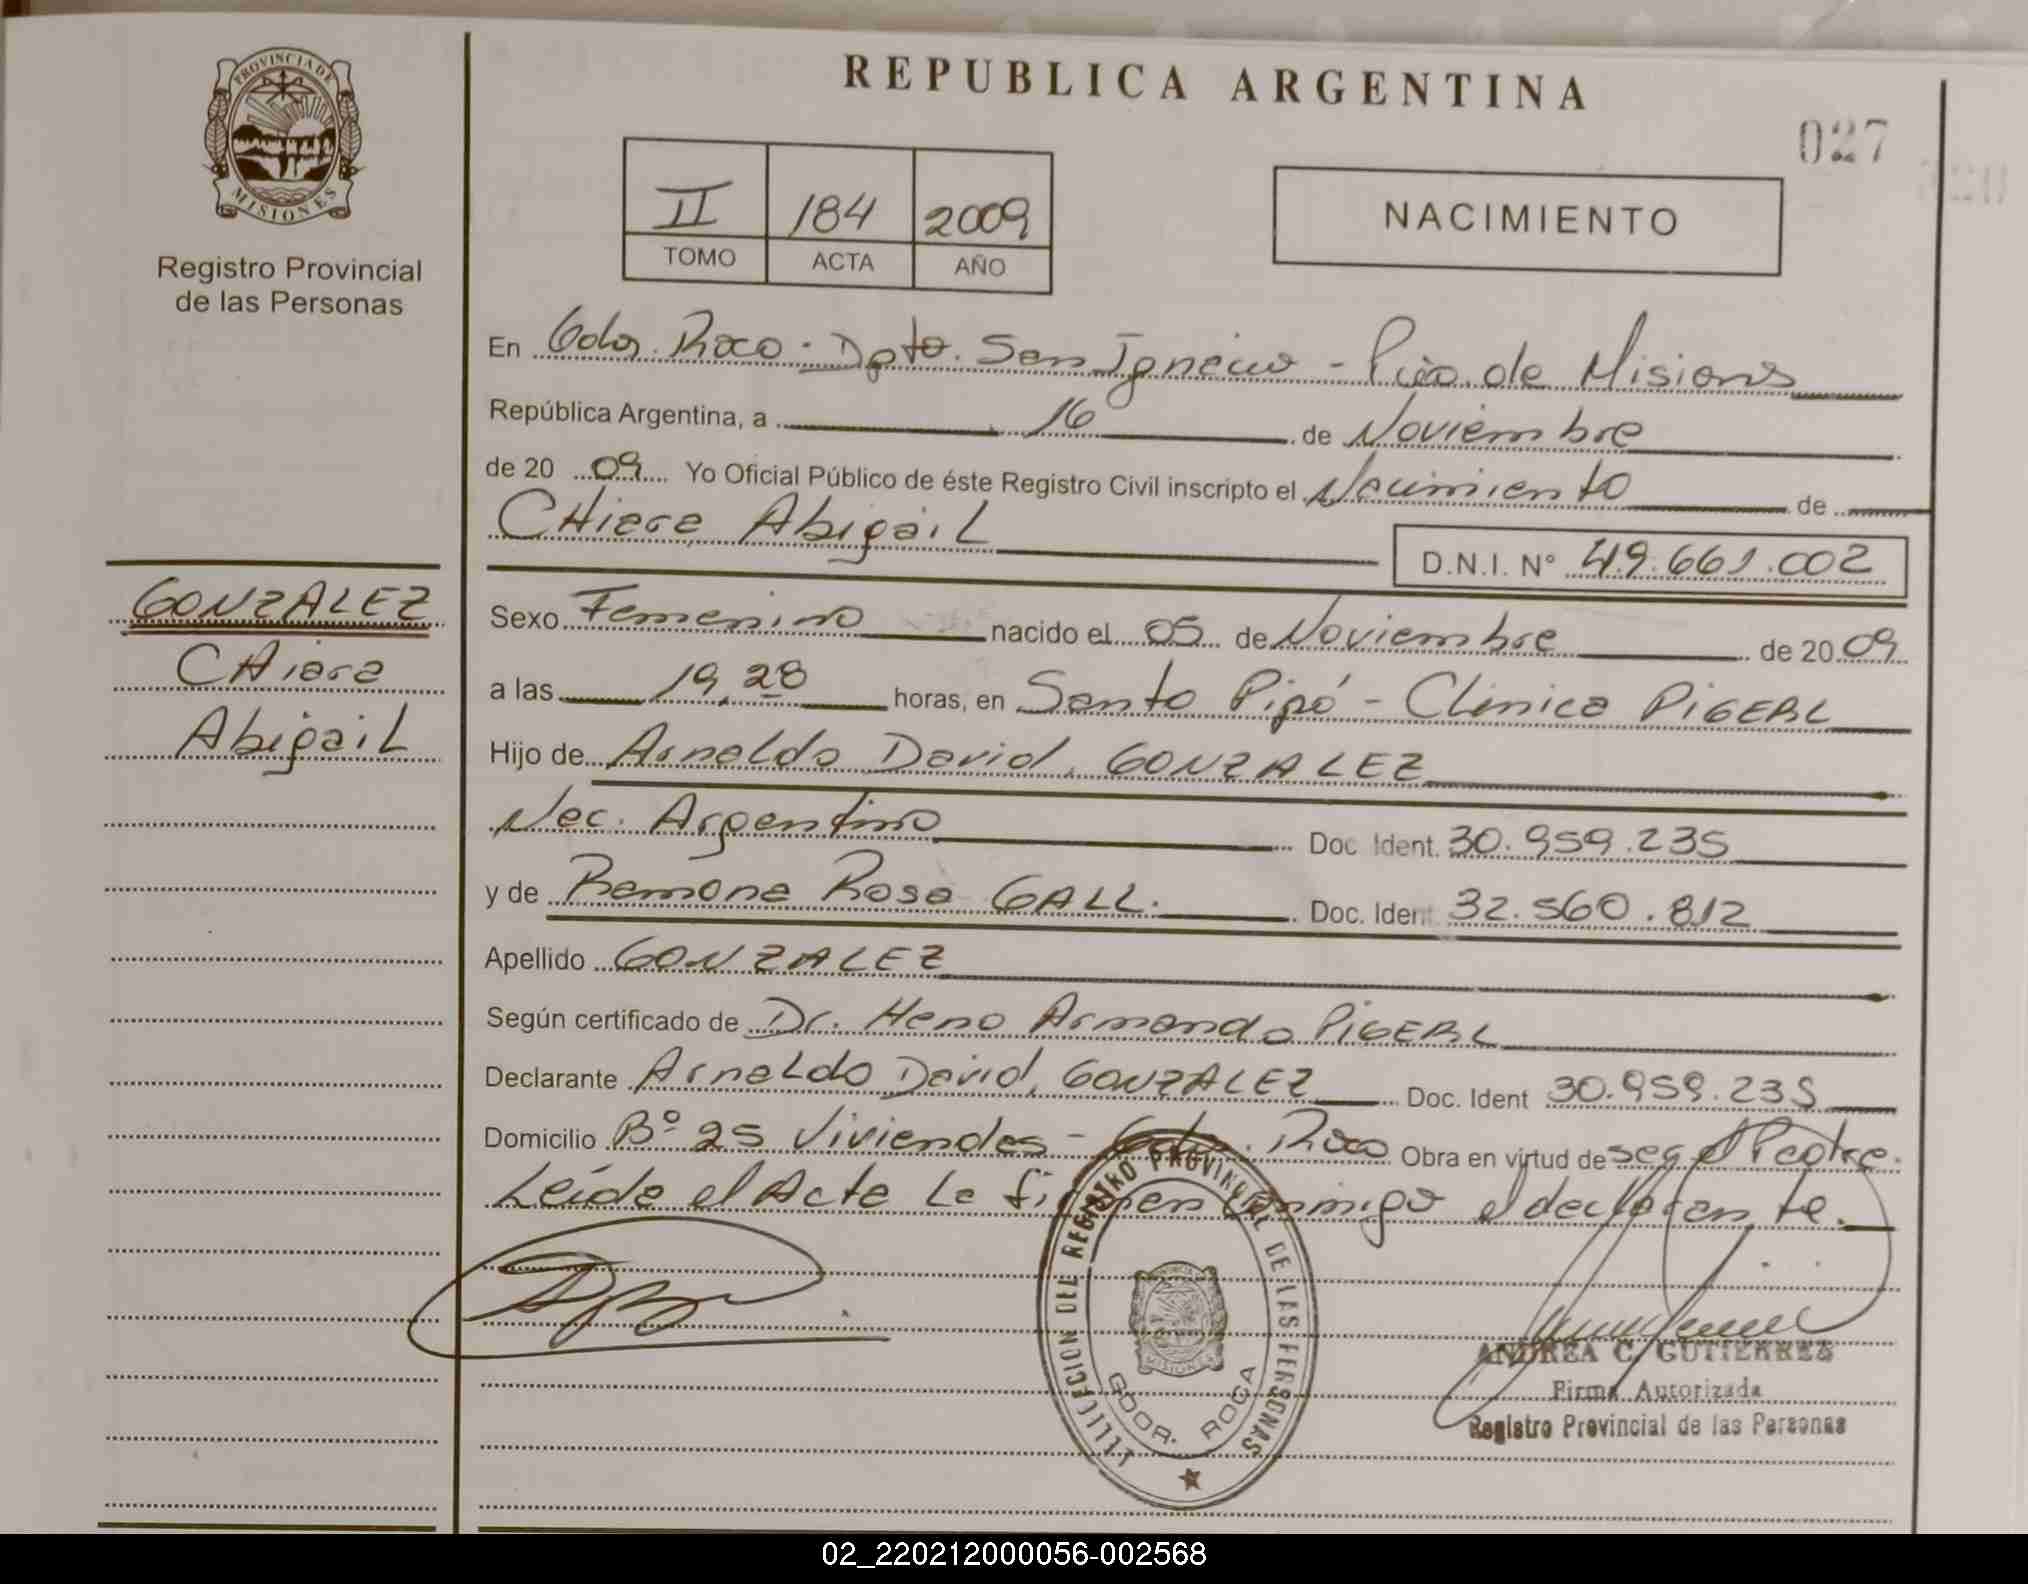 REPUBLICA ARGENTINA
027
PROVINCIA DE
MISIONES
Registro Provincial
de las Personas
II 184 2009
TOMO ACTA AÑO
NACIMIENTO
En Gdor. Roca - Dpto. San Ignacio - Pcia. de Misiones
República Argentina, a 16 de Noviembre
de 20 09 Yo Oficial Público de éste Registro Civil inscripto el Nacimiento de
CHiara Abigail
D.N.I. N° 49.661.002
GONZALEZ
CHiara
Abigail
Sexo Femenino nacido el 05 de Noviembre de 20 09
a las 19,28 horas, en Santo Pipó - Clinica PIGERL
Hijo de Arnaldo David, GONZALEZ
Nac. Argentino Doc Ident. 30.959.235
y de Ramona Rosa GALL. Doc. Ident 32.560.812
Apellido GONZALEZ
Según certificado de Dr. Heno Armando PIGERL
Declarante Arnaldo David, GONZALEZ Doc. Ident 30.959.235
Domicilio B° 25 Viviendas - Gdor. Roca Obra en virtud de ser el Padre.
Leída el Acta la firman conmigo el declarante.
DEL REGISTRO PROVINCIAL DE LAS PERSONAS
MISIONES
GDOR. ROCA
ANDREA C. GUTIERREZ
Firma Autorizada
Registro Provincial de las Personas
02_220212000056-002568